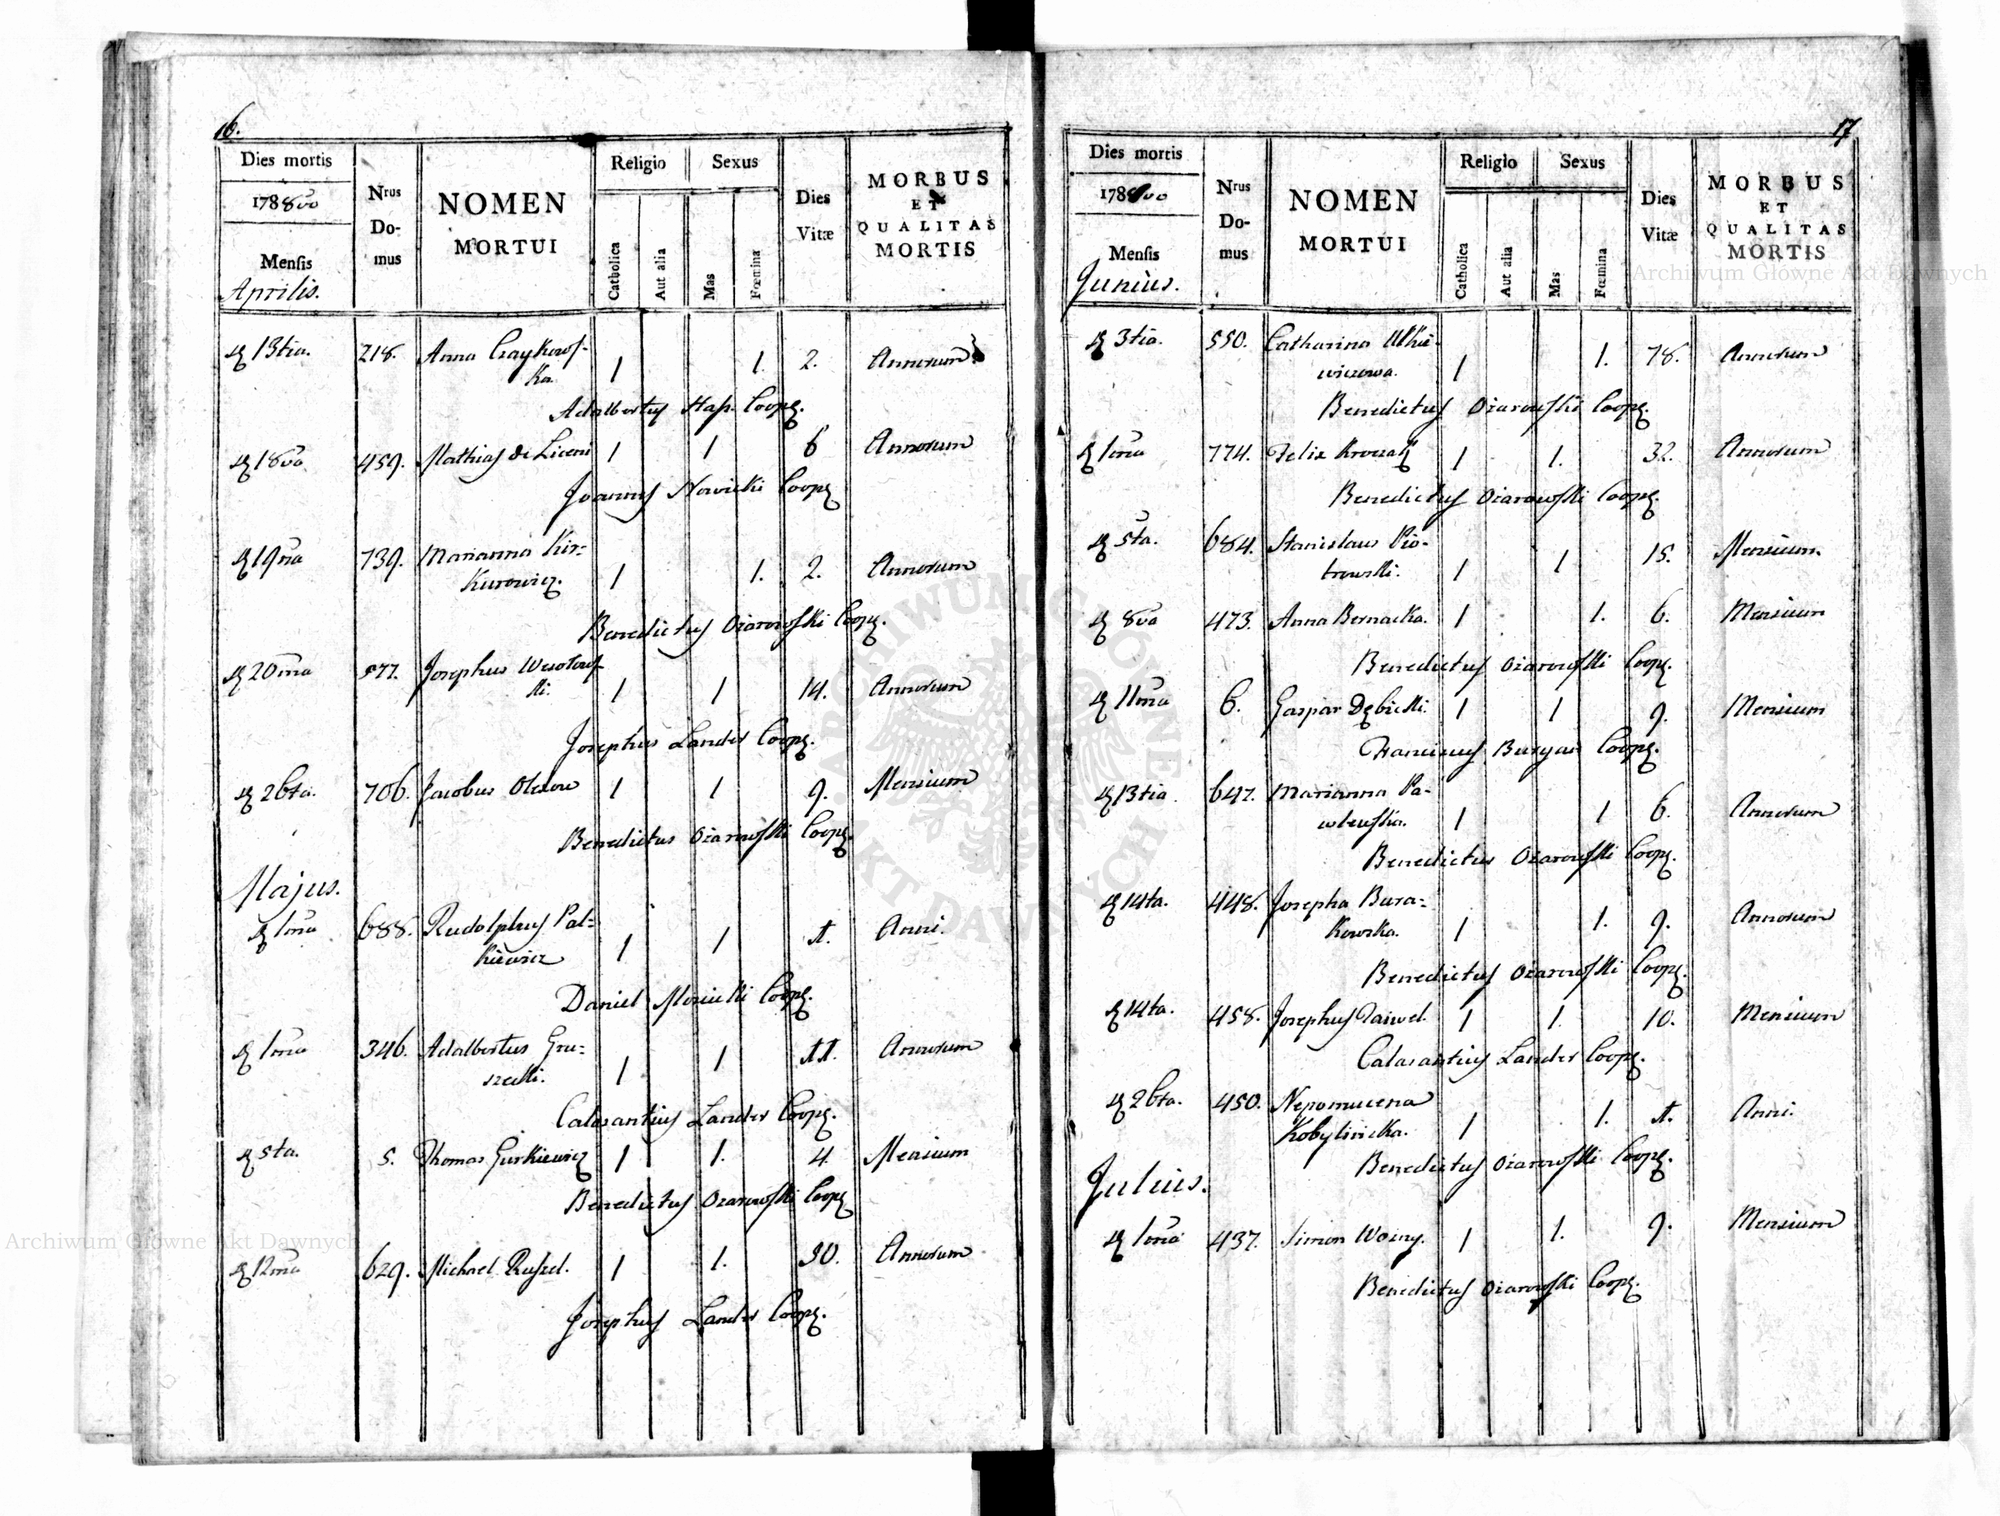 16.
Dies mortis
178800
Mensis
Aprilis.
Nrus Domus
NOMEN MORTUI
Religio
Catholica
Aut alia
Sexus
Mas
Fœmina
Dies Vitæ
MORBUS ET QUALITAS MORTIS
13tia. 218. Anna Czaykows- 1 1. 2. Annorum
ka.
Adalbertus Coop.
18va 459. Mathias de Liceni 1 1 6 Annorum
Joannes Nowicki Coop
19na 739. Marianna Kir= 1 1. 2. Annorum
kurowicz.
Benedictus Ożarowski Coop.
20ma 577. Josephus Wesołows 1 1 14. Annorum
ki.
Josephus Lander Coop.
26ta. 706. Jacobus 1 1 9. Mensium
Benedictus Ożarowski Coop.
Majus.
1ma 688. Rudolphus Pal= 1 1 1. Anni.
kiewicz
Daniel Coop.
1ma 346. Adalbertus Gru= 1 1 11. Annorum
szecki.
Calasantius Lander Coop.
5ta. 5. Thomas Gurkiewicz 1 1. 4. Mensium
Benedictus Ożarowski Coop
12ma 629. Michael 1 1. 30. Annorum
Josephus Lander Coop.
17
Dies mortis
178800
Mensis
Junius.
Nrus Domus
NOMEN MORTUI
Religio
Catholica
Aut alia
Sexus
Mas
Fœmina
Dies Vitæ
MORBUS ET QUALITAS MORTIS
3tia. 550. Catharina 1 1. 78. Annorum
wiczowa.
Benedictus Ożarowski Coop.
1ma 774. Felix 1 1. 32. Annorum
Benedictus Ożarowski Coop.
5ta. 684. Stanislaus Pio- 1 1 15. Mensium
trowski.
8va 473. Anna Bernacka. 1 1. 6. Mensium
Benedictus Ożarowski Coop.
11ma 6. Gaspar Dębicki. 1 1 9. Mensium
Franciscus Coop.
13tia 647. Marianna Pa- 1 1 6. Annorum
wlewska.
Benedictus Ożarowski Coop.
14ta. 448. Josepha Bura= 1 1. 9. Annorum
kowska.
Benedictus Ożarowski Coop.
14ta. 458. Josephus 1 1. 10. Mensium
Calasantius Lander Coop.
26ta. 450. Nepomucena 1 1. 1. Anni.
Kobylinicka.
Benedictus Ożarowski Coop.
Julius.
1ma 437. Simon Woiny. 1 1. 9. Mensium
Benedictus Ożarowski Coop.
Archiwum Główne Akt Dawnych
Archiwum Główne Akt Dawnych
ARCHIWUM GŁÓWNE AKT DAWNYCH